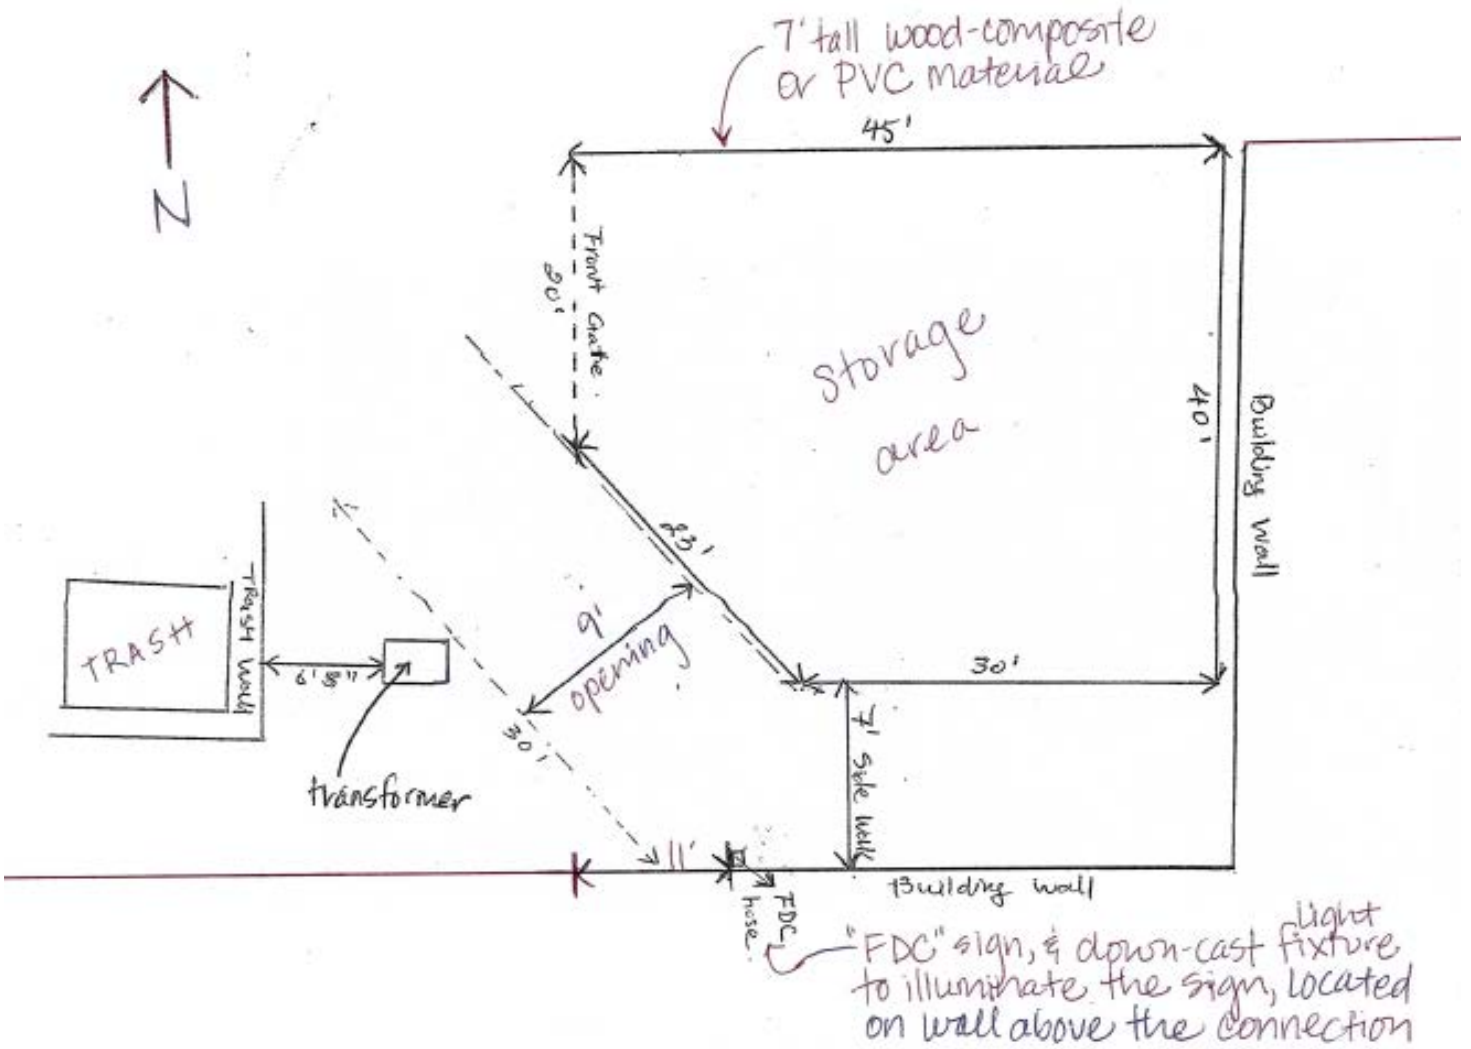 7' tall wood-composite
or PVC material
45'
N
Front Gate
20'
Storage
area
40'
Building Wall
23'
9'
opening
30'
TRASH
TRASH Wall
6' 8"
transformer
30'
7' Side Walk
11'
FDC
hose
Building wall
"FDC" sign, & down-cast Light fixture
to illuminate the sign, located
on wall above the connection